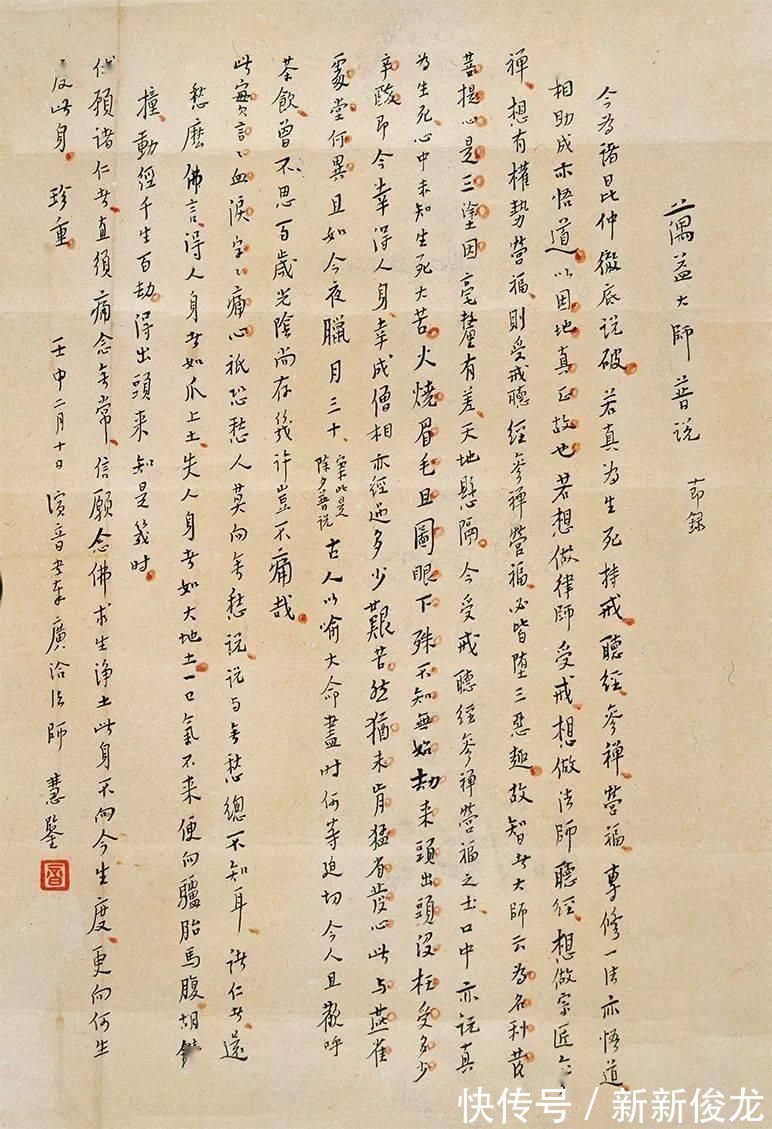 蕅益大師普說 節錄
今為諸昆仲徹底說破若真為生死持戒聽經參禪營福專修一法亦悟道
相助成亦悟道以因地真正故也若想做律師受戒想做法師聽經想做宗匠參
禪想有權勢營福則受戒聽經參禪營福必皆墮三惡趣故智者大師云為名利發
菩提心是三塗因毫釐有差天地懸隔今受戒聽經參禪營福之士口中亦說真
為生死心中未知生死大苦火燒眉毛且圖眼下殊不知無始劫來頭出頭沒枉受多少
辛酸即今幸得人身幸成僧相亦經過多少艱苦然猶未肯猛省發心此與燕雀
處堂何異且如今夜臘月三十案此是除夕普說古人以喻大命盡時何等迫切今人且歡呼
茶飲曾不思百歲光陰尚存幾許豈不痛哉
此實言言血淚字字痛心祇恐愁人莫向無愁說說與無愁總不知耳諸仁者還
愁麼佛言得人身者如爪上土失人身者如大地土一口氣不來便向驢胎馬腹胡鑽亂
撞動經千生百劫得出頭來知是幾時
伏願諸仁者直須痛念無常信願念佛求生淨土此身不向今生度更向何生
度此身珍重
壬申二月十日演音書奉廣洽法師慧鑒
音
快传号/新新俊龙